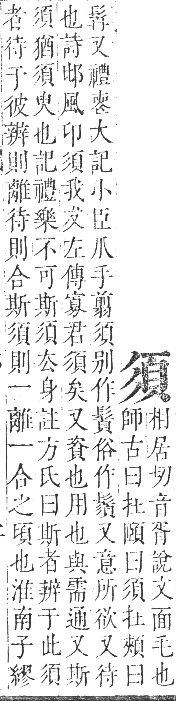 須
相居切音胥說文面毛也
師古曰在頤曰須在頰曰
髯又禮喪大記小臣爪手翦須別作鬚俗作䰅又意所欲又待
也詩邶風卬須我友左傳寡君須矣又資也用也與需通又斯
須猶須臾也記禮樂不可斯須去身註方氏曰斯者辨于此須
者待于彼辨則離待則合斯須則一離一合之頃也淮南子繆